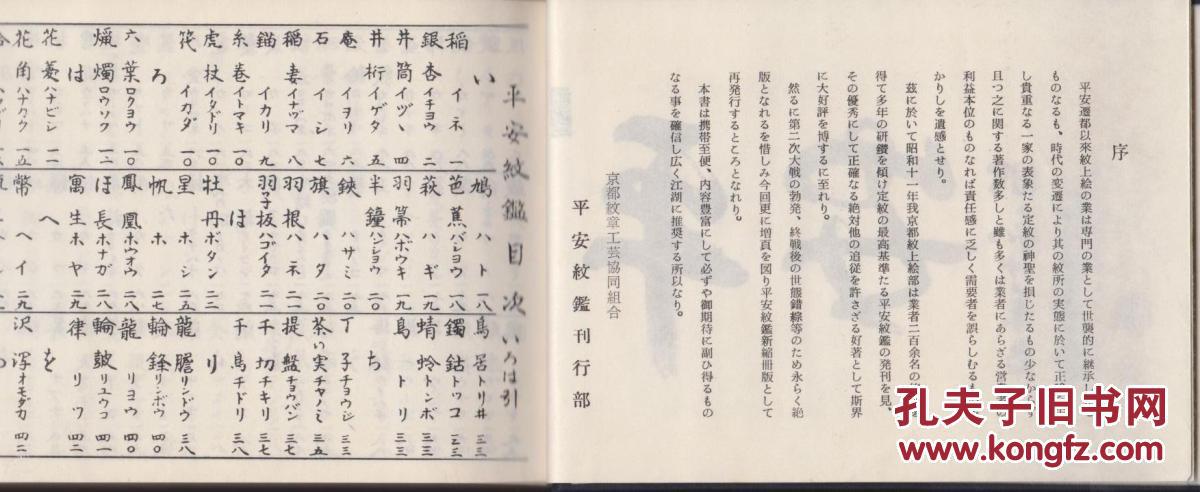 序
平安遷都以來紋上絵の業は専門の業として世襲的に継承し
ものなるも、時代の変遷により其の紋所の実態に於いて正
し貴重なる一家の表象たる定紋の神聖を損じたるもの少なからず
且つ之に関する著作数多しと雖も多くは業者にあらざる営
利益本位のものなれば責任感に乏しく需要者を誤らしむるも
かりしを遺感とせり。
茲に於いて昭和十一年我京都紋上絵部は業者二百余名の
得て多年の研鑽を傾け定紋の最高基準たる平安紋鑑の発刊を見、
その優秀にして正確なる絶対他の追従を許さざる好著として斯界
に大好評を博するに至れり。
然るに第二次大戦の勃発、終戦後の世態錯綜等のため永らく絶
版となれるを惜しみ今回更に増頁を図り平安紋鑑新縮冊版として
再発行するところとなれり。
本書は携帯至便、内容豊富にして必ずや御期待に副ひ得るもの
なる事を確信し広く江湖に推奨する所以なり。
京都紋章工芸協同組合
平安紋鑑刊行部
平安紋鑑目次 いろは引
い
稲 イネ 一
銀杏 イチヨウ 二
井筒 イヅヽ 四
井桁 イゲタ 五
庵 イヲリ 六
石 イシ 七
稲妻 イナヅマ 八
錨 イカリ 九
糸巻 イトマキ 一〇
虎杖 イタドリ 一〇
筏 イカダ 一〇
ろ
六葉 ロクヨウ 一〇
蝋燭 ロウソク 一二
は
花菱 ハナビシ 一二
花角 ハナカク 一五
鳩 ハト 一八
芭蕉 バシヨウ 一八
萩 ハギ 一九
羽箒 ハボウキ 一九
半鐘 ハンシヨウ 二〇
鋏 ハサミ 二〇
旗 ハタ 二〇
羽根 ハネ 二一
羽子板 ハゴイタ 二一
ほ
牡丹 ボタン 二二
星 ホシ 二五
帆 ホ 二七
鳳凰 ホウオウ 二八
長 ホナガ 二八
寓生 ホヤ 二九
へ
幣 ヘイ 二九
鳥居 トリ井 三三
鐲鈷 トツコ 三三
蜻蛉 トンボ 三三
鳥 トリ 三三
ち
丁子 チヨウジ 三三
茶い実 チヤノミ 三五
提盤 チヨウバン 三七
千切 チキリ 三七
千鳥 チドリ 三八
り
龍膽 リンドウ 三八
輪鋒 リンボウ 四〇
龍 リヨウ 四〇
輪鼓 リユウコ 四一
律 リツ 四二
を
沢瀉 オモダカ 四二
孔夫子旧书网
kongfz.com